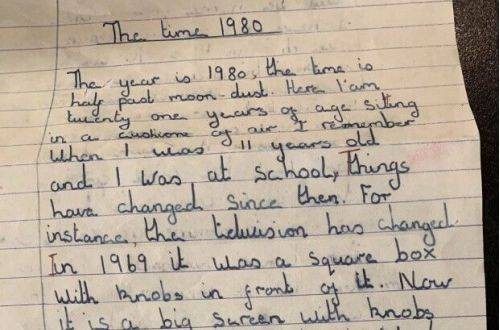 The time 1980
The year is 1980, the time is
half past moon-dust. Here I am
twenty one years of age siting
in a cushione of air I remember
When I was 11 years old
and I was at school, Things
have changed since then. For
instance, the television has changed.
In 1969 it was a square box
with knobs in front of it. Now
it is a big screen with knobs